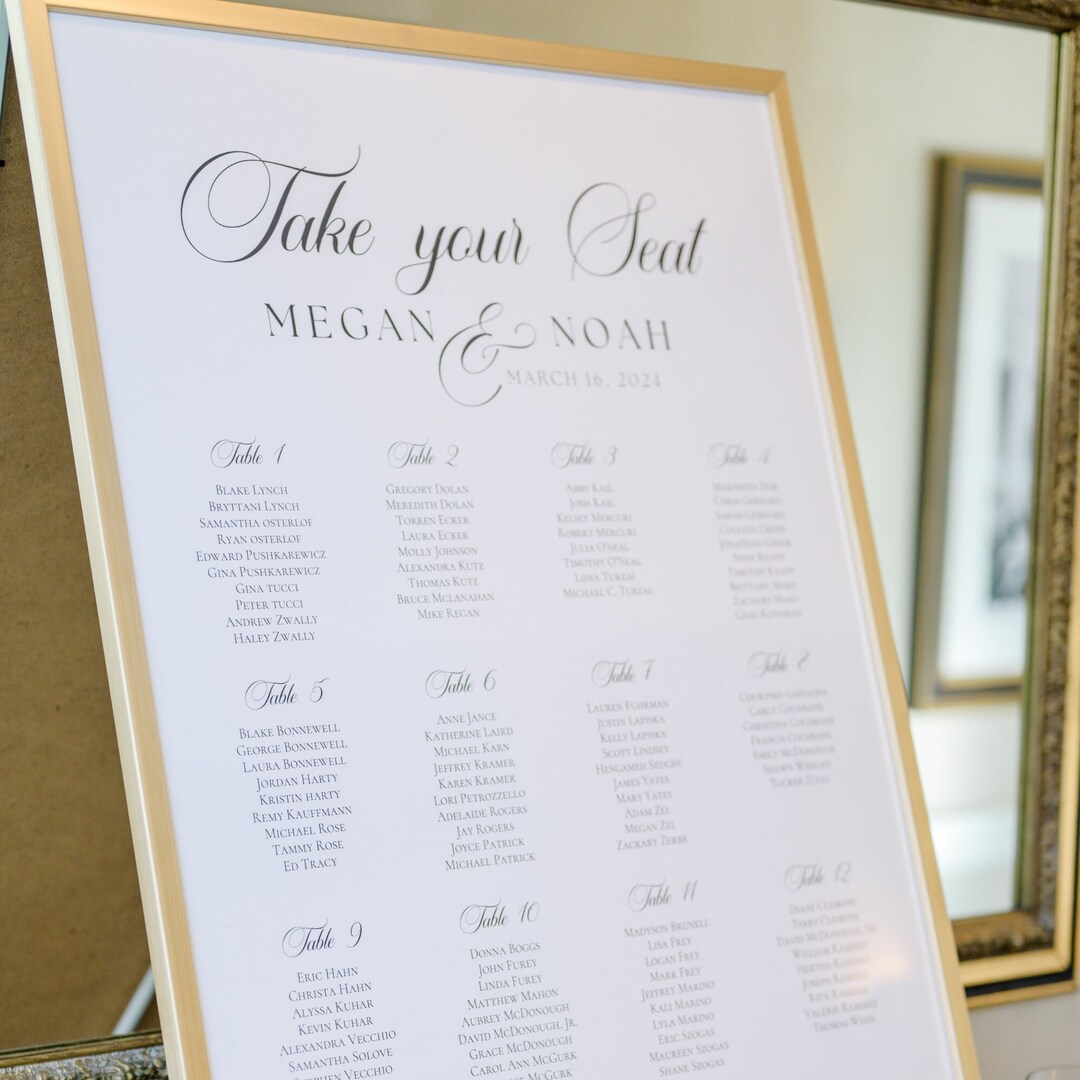 Take your Seat
MEGAN & NOAH
MARCH 16, 2024
Table 1
BLAKE LYNCH
BRYTTANI LYNCH
SAMANTHA OSTERLOF
RYAN OSTERLOF
EDWARD PUSHKAREWICZ
GINA PUSHKAREWICZ
GINA TUCCI
PETER TUCCI
ANDREW ZWALLY
HALEY ZWALLY
Table 2
GREGORY DOLAN
MEREDITH DOLAN
TORREN ECKER
LAURA ECKER
MOLLY JOHNSON
ALEXANDRA KUTZ
THOMAS KUTZ
BRUCE MCLANAHAN
MIKE REGAN
Table 3
ABBY KAIL
JOSH KAIL
KELSEY MERCURI
ROBERT MERCURI
JULIA O'NEAL
TIMOTHY O'NEAL
LIDIA TURZAI
MICHAEL C. TURZAI
Table 4
COLLEEN GREER
JONATHAN GREER
BRITTANY
ZACHARY
GREG ROTHMAN
Table 5
BLAKE BONNEWELL
GEORGE BONNEWELL
LAURA BONNEWELL
JORDAN HARTY
KRISTIN HARTY
REMY KAUFFMANN
MICHAEL ROSE
TAMMY ROSE
ED TRACY
Table 6
ANNE JANCE
KATHERINE LAIRD
MICHAEL KARN
JEFFREY KRAMER
KAREN KRAMER
LORI PETROZZELLO
ADELAIDE ROGERS
JAY ROGERS
JOYCE PATRICK
MICHAEL PATRICK
Table 7
LAUREN FUHRMAN
JUSTIN LAPISKA
KELLY LAPISKA
SCOTT LINDSEY
HENGAMEH SEDGHI
JAMES YATES
MARY YATES
ADAM ZEI
MEGAN ZEI
ZACKARY ZERBE
Table 8
COURTNEY
CARLY COCHRANE
CHRISTINA COCHRANE
FRANCIS COCHRANE
EMILY MCDONOUGH
SHAWN WHELAN
TUCKER ZULLI
Table 9
ERIC HAHN
CHRISTA HAHN
ALYSSA KUHAR
KEVIN KUHAR
ALEXANDRA VECCHIO
SAMANTHA SOLOVE
STEPHEN VECCHIO
Table 10
DONNA BOGGS
JOHN FUREY
LINDA FUREY
MATTHEW MAHON
AUBREY MCDONOUGH
DAVID MCDONOUGH, JR.
GRACE MCDONOUGH
CAROL ANN MCGURK
MCGURK
Table 11
MADYSON BRUNELL
LISA FREY
LOGAN FREY
MARK FREY
JEFFREY MARINO
KALI MARINO
LYLA MARINO
ERIC SZOGAS
MAUREEN SZOGAS
SHANE SZOGAS
Table 12
DIANE CLEMONS
TERRY CLEMONS
DAVID MCDONOUGH, SR.
WILLIAM RAMIREZ
RAMIREZ
JOSEPH RAMIREZ
RITA RAMIREZ
VALERIE RAMIREZ
THOMAS WEISS